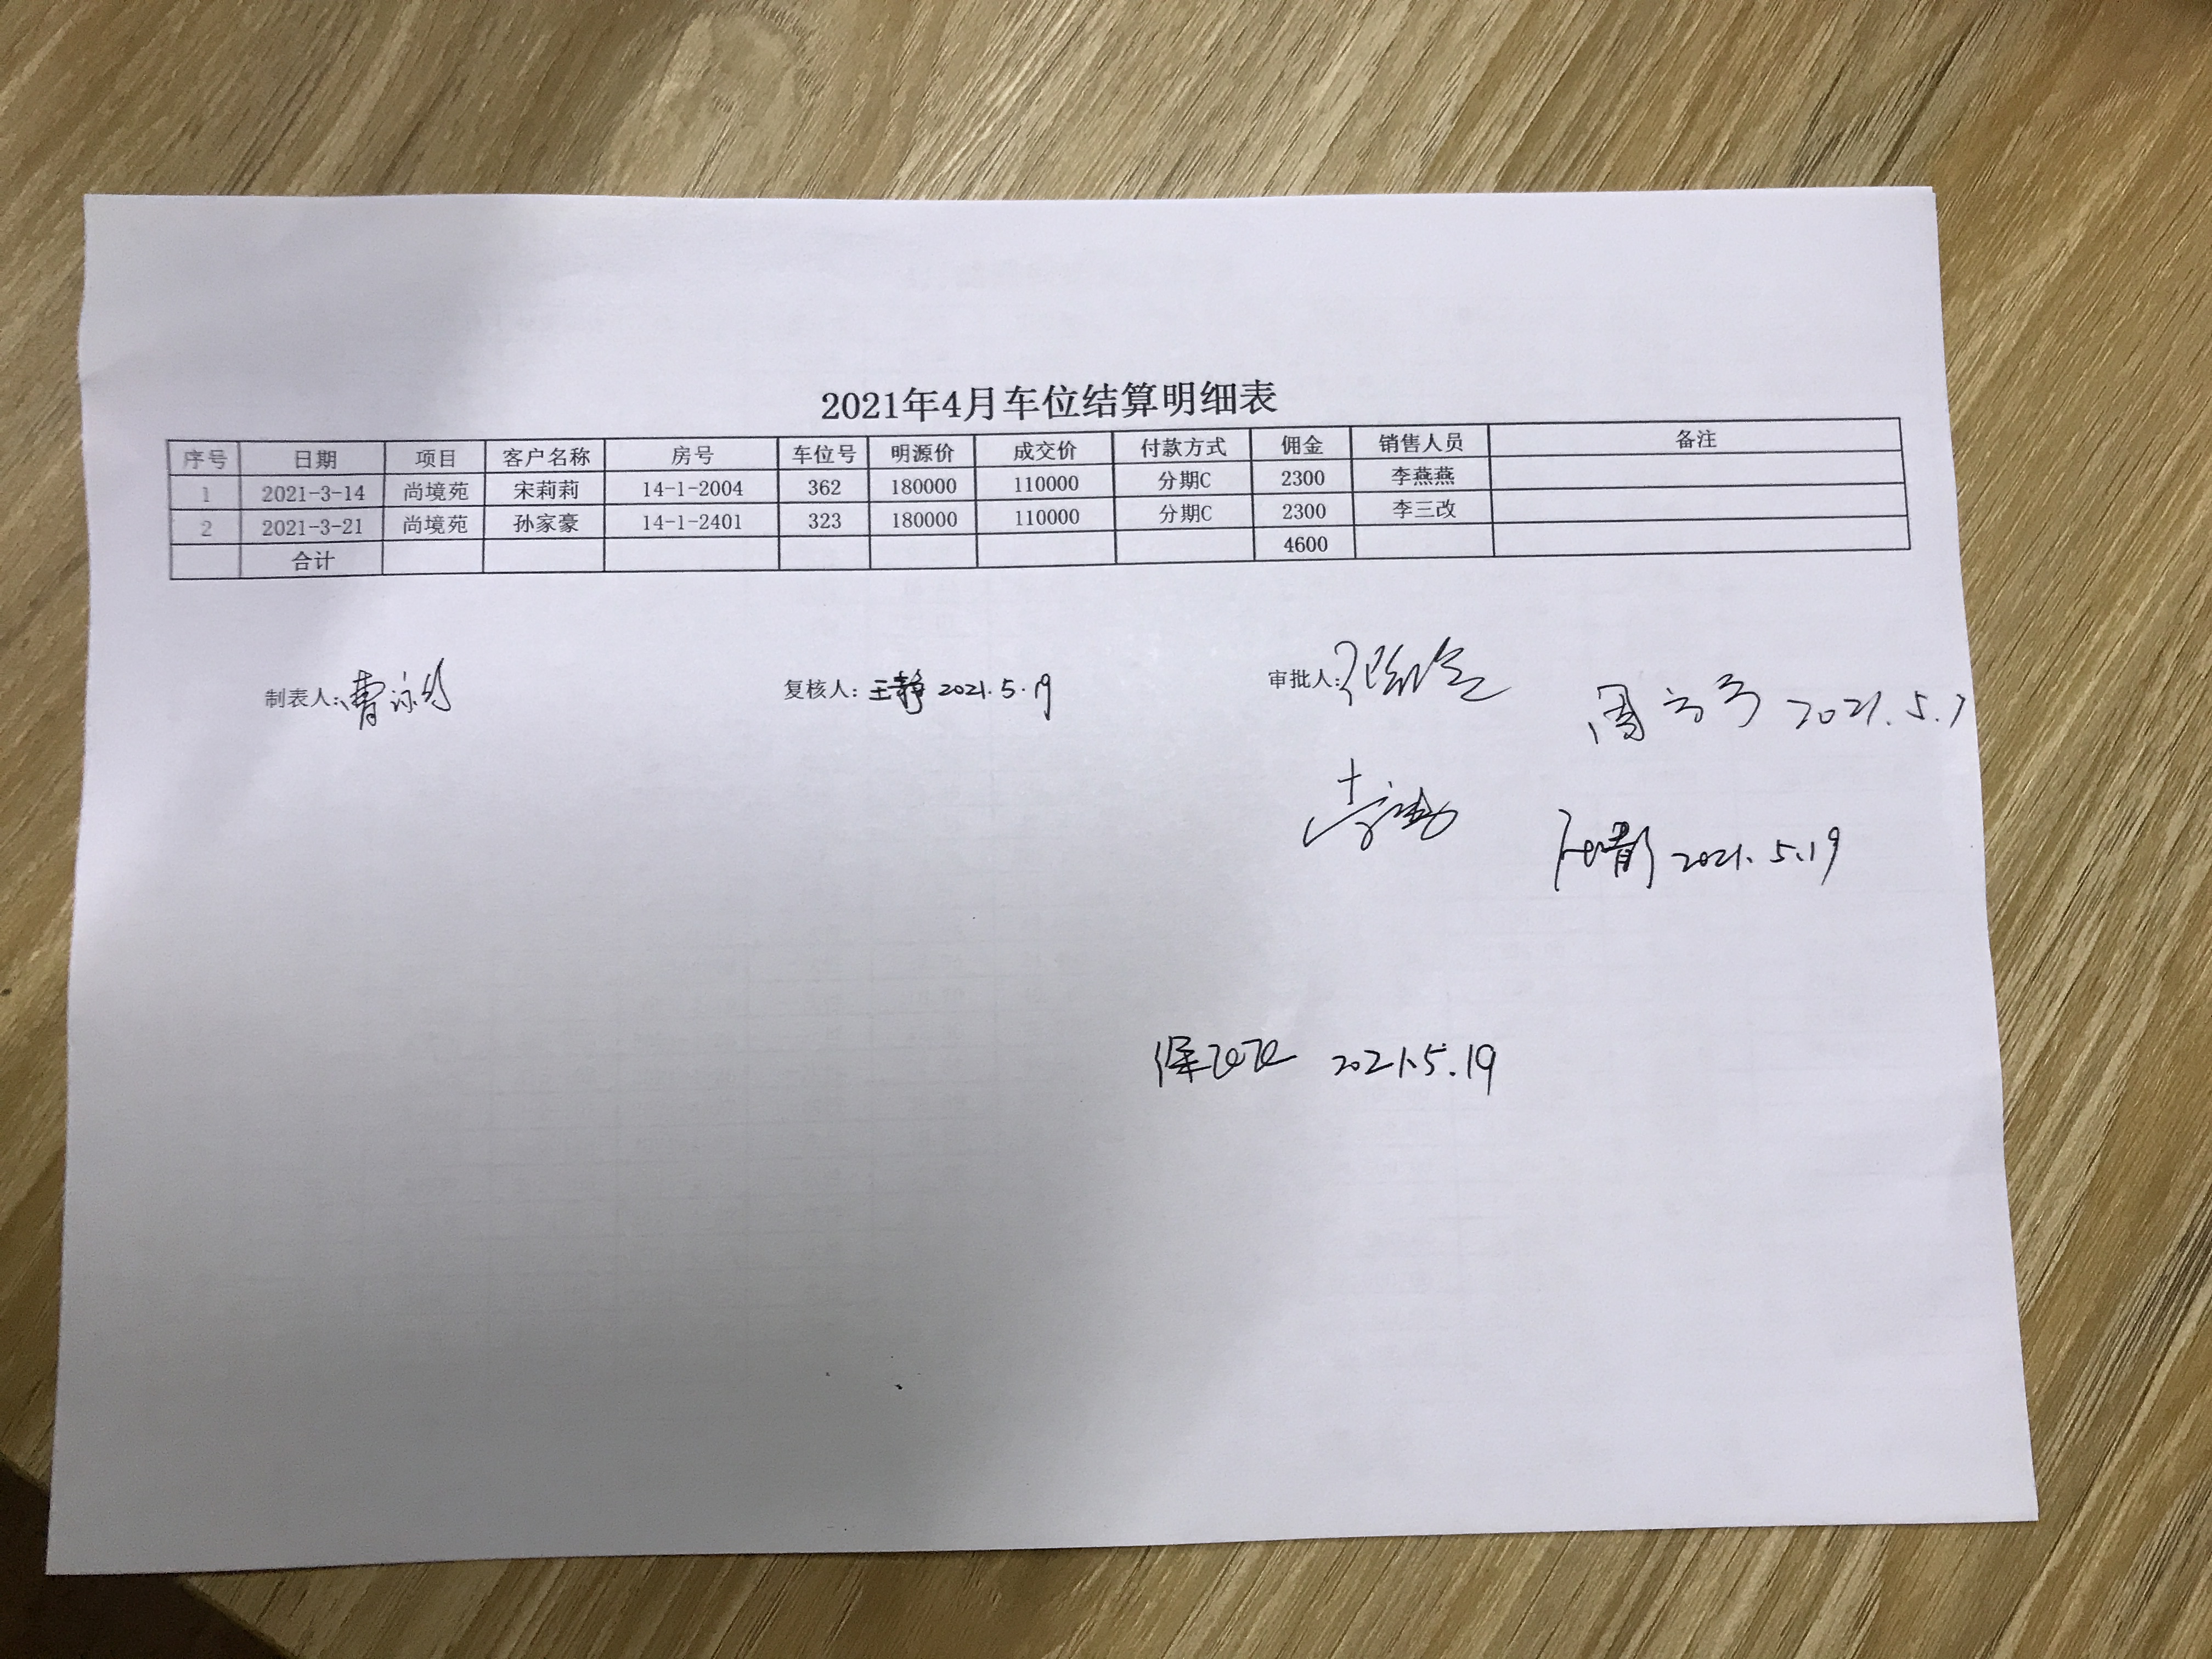 2021年4月车位结算明细表
序号 日期 项目 客户名称 房号 车位号 明源价 成交价 付款方式 佣金 销售人员 备注
1 2021-3-14 尚境苑 宋莉莉 14-1-2004 362 180000 110000 分期C 2300 李燕燕
2 2021-3-21 尚境苑 孙家豪 14-1-2401 323 180000 110000 分期C 2300 李三改
合计 4600
制表人: 曹 复核人: 王静 2021.5.19 审批人:
周 2021.5.1
2021.5.19
2021.5.19